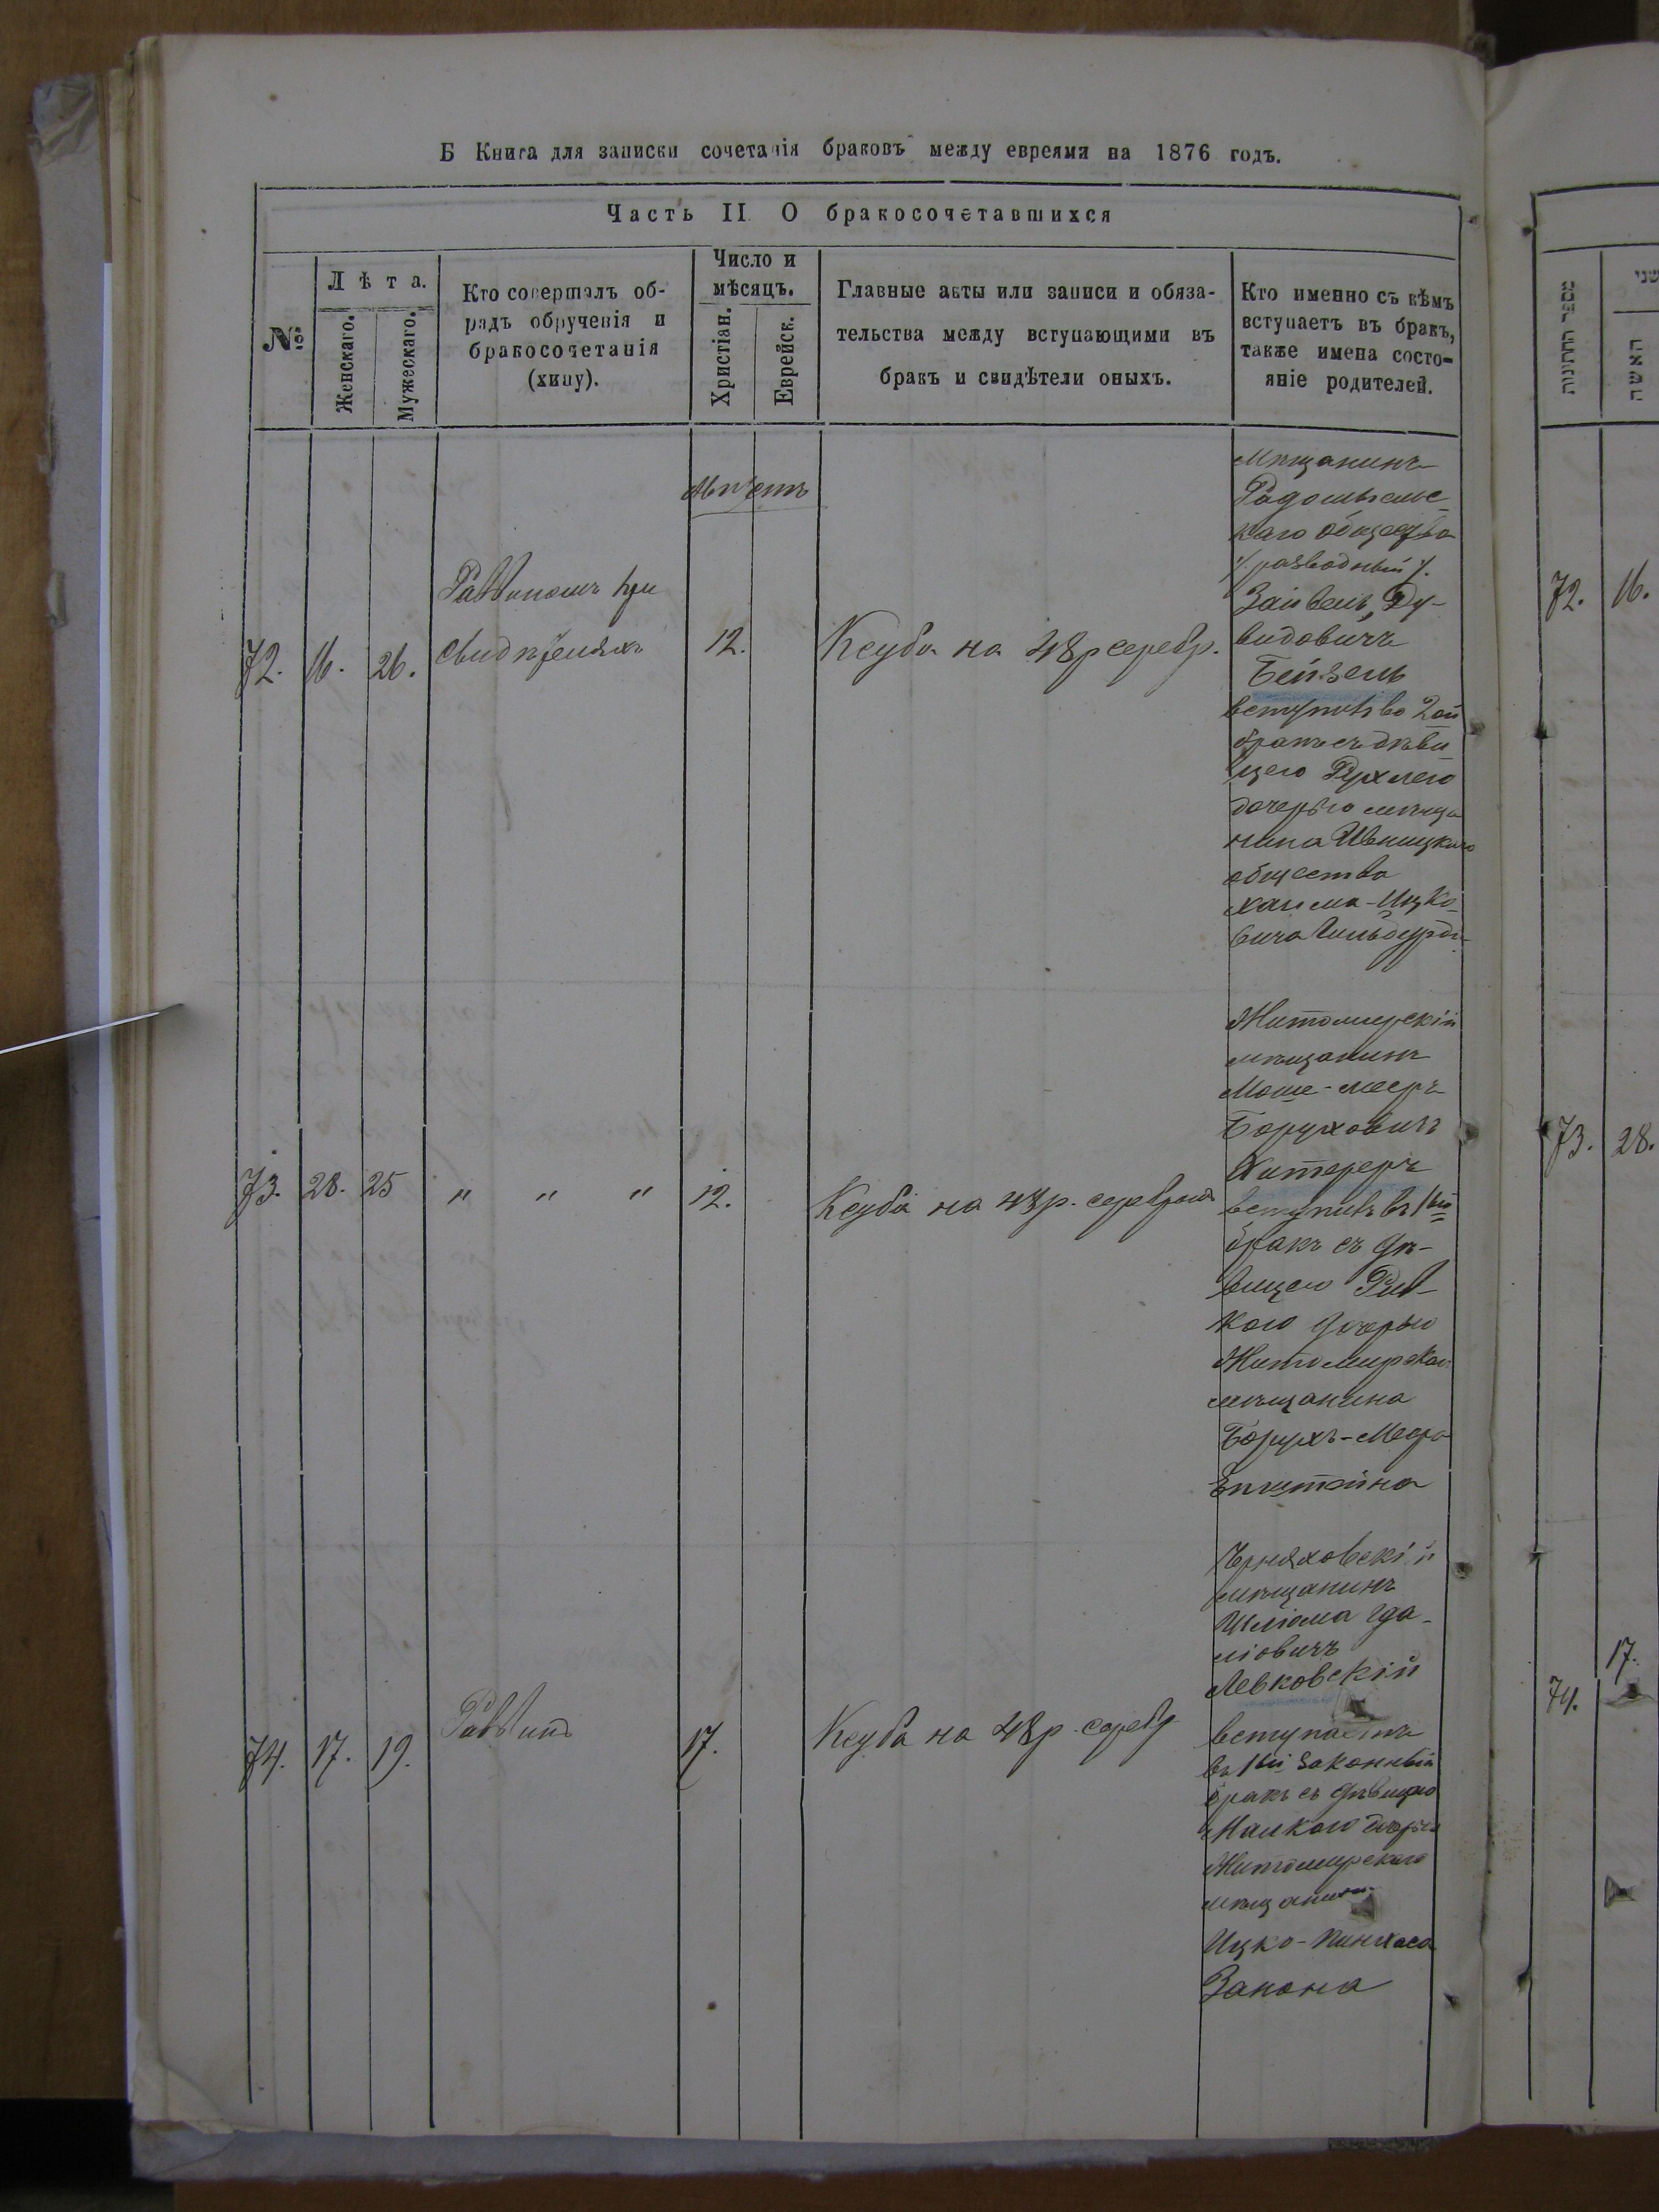 Б Книга для записки сочетанія браковъ между евреями на 1876 годъ.
Часть II О бракосочетавшихся
№
Лѣта.
Женскаго.
Мужескаго.
Кто совершалъ об-
рядъ обрученія и
бракосочетанія
(хипу).
Число и
мѣсяцъ.
Христіан.
Еврейск.
Главные акты или записи и обяза-
тельства между вступающими въ
бракъ и свидѣтели оныхъ.
Кто именно съ кѣмъ
вступаетъ въ бракъ,
также имена состо-
яніе родителей.
Августъ
72. 16. 26.
Раввиномъ при
свидѣтеляхъ
12.
Кеуба на 48 р серебр.
мѣщанинъ
Радомысльс-
каго общества
/. разводный /.
Зайвель Ду-
видовичъ
Бейзель
вступилъ во 2ой
бракъ съ дѣви
цею Рухлею
дочерью мѣща
нина Ивницкаго
общества
Хаима-Ицко-
вича
73. 28. 25
" " "
12.
Кеуба на 48 р. серебромъ
Житомирскій
мѣщанинъ
Моше-Мееръ
Боруховичъ
Хитереръ
вступилъ въ 1ый
бракъ съ дѣ-
вицею Рив-
кою дочерью
Житомирскаго
мѣщанина
Борухъ-Меера
Епштейна
74. 17. 19.
Раввинъ
17.
Кеуба на 48 р. серебр
Черняховскій
мѣщанинъ
Шліома Гда-
ліовичъ
Левковскій
вступаетъ
въ 1ый законный
бракъ съ дѣвицею
Малкою дочерью
Житомирскаго
мѣщанина
Ицко-Пинхаса
Запона
מספר החתונות
שני
האשה
72. 16.
73. 28.
17.
74.